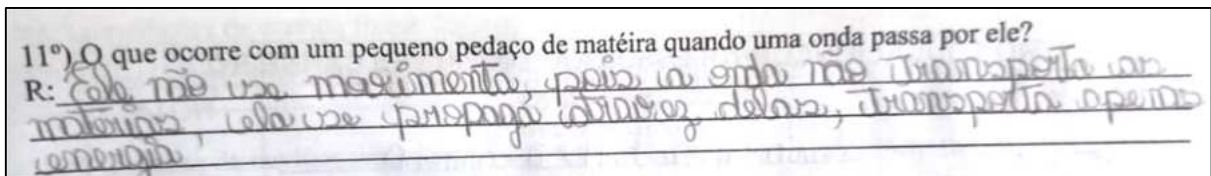 11º) O que ocorre com um pequeno pedaço de matéira quando uma onda passa por ele?
R: Ele não se movimenta, pois a onda não transporta as
materias, ela se propaga atravez delas, transporta apenas
energia